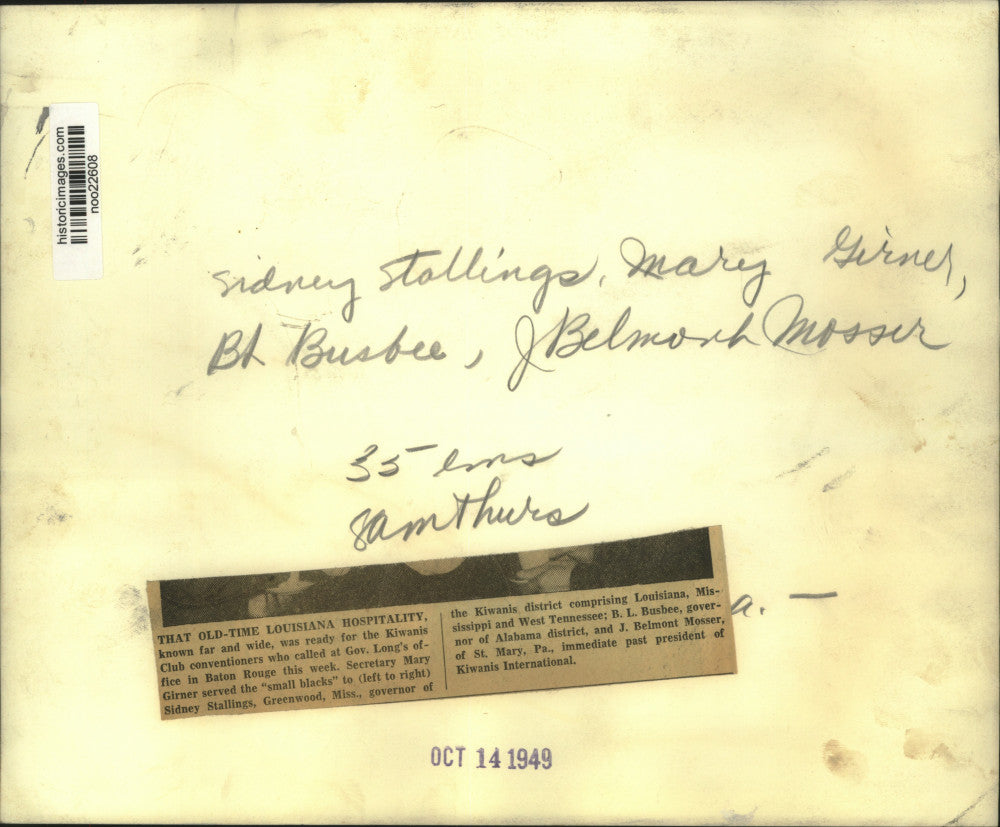 historicimages.com
noo22608
Sidney Stallings, Mary Girner,
BL Busbee, J Belmont Mosser
35 ems
8am Thurs
THAT OLD-TIME LOUISIANA HOSPITALITY,
known far and wide, was ready for the Kiwanis
Club conventioners who called at Gov. Long's of-
fice in Baton Rouge this week. Secretary Mary
Girner served the "small blacks" to (left to right)
Sidney Stallings, Greenwood, Miss., governor of
the Kiwanis district comprising Louisiana, Mis-
sissippi and West Tennessee; B. L. Busbee, gover-
nor of Alabama district, and J. Belmont Mosser,
of St. Mary, Pa., immediate past president of
Kiwanis International.
a. —
OCT 14 1949